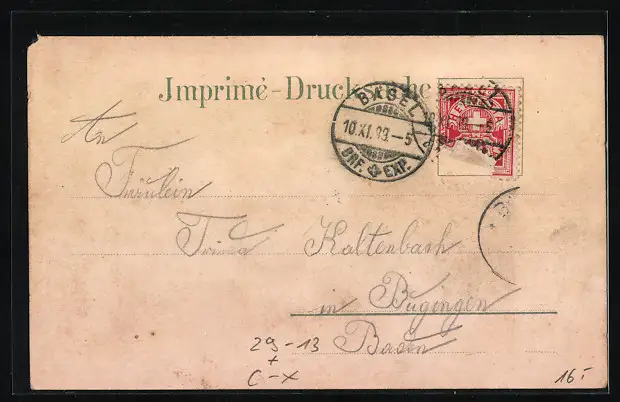 Imprimé - Drucksache
BASEL
10.XI.99.–5
BRF. EXP.
An
Fräulein
Frida Kaltenbach
in Bugingen
Baden
29-13
+
C-X
16.-